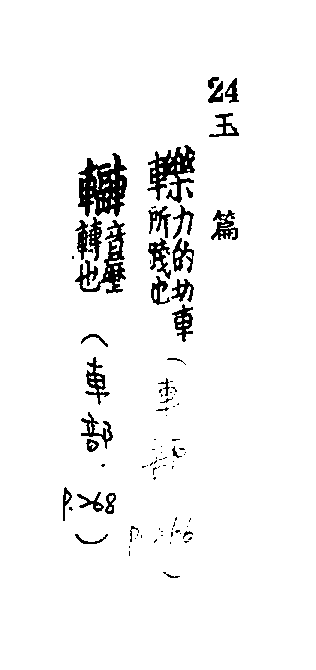 24 玉篇
轢 力的切車所踐也 (車部 P.266)
音歷轉也 (車部. P.268)